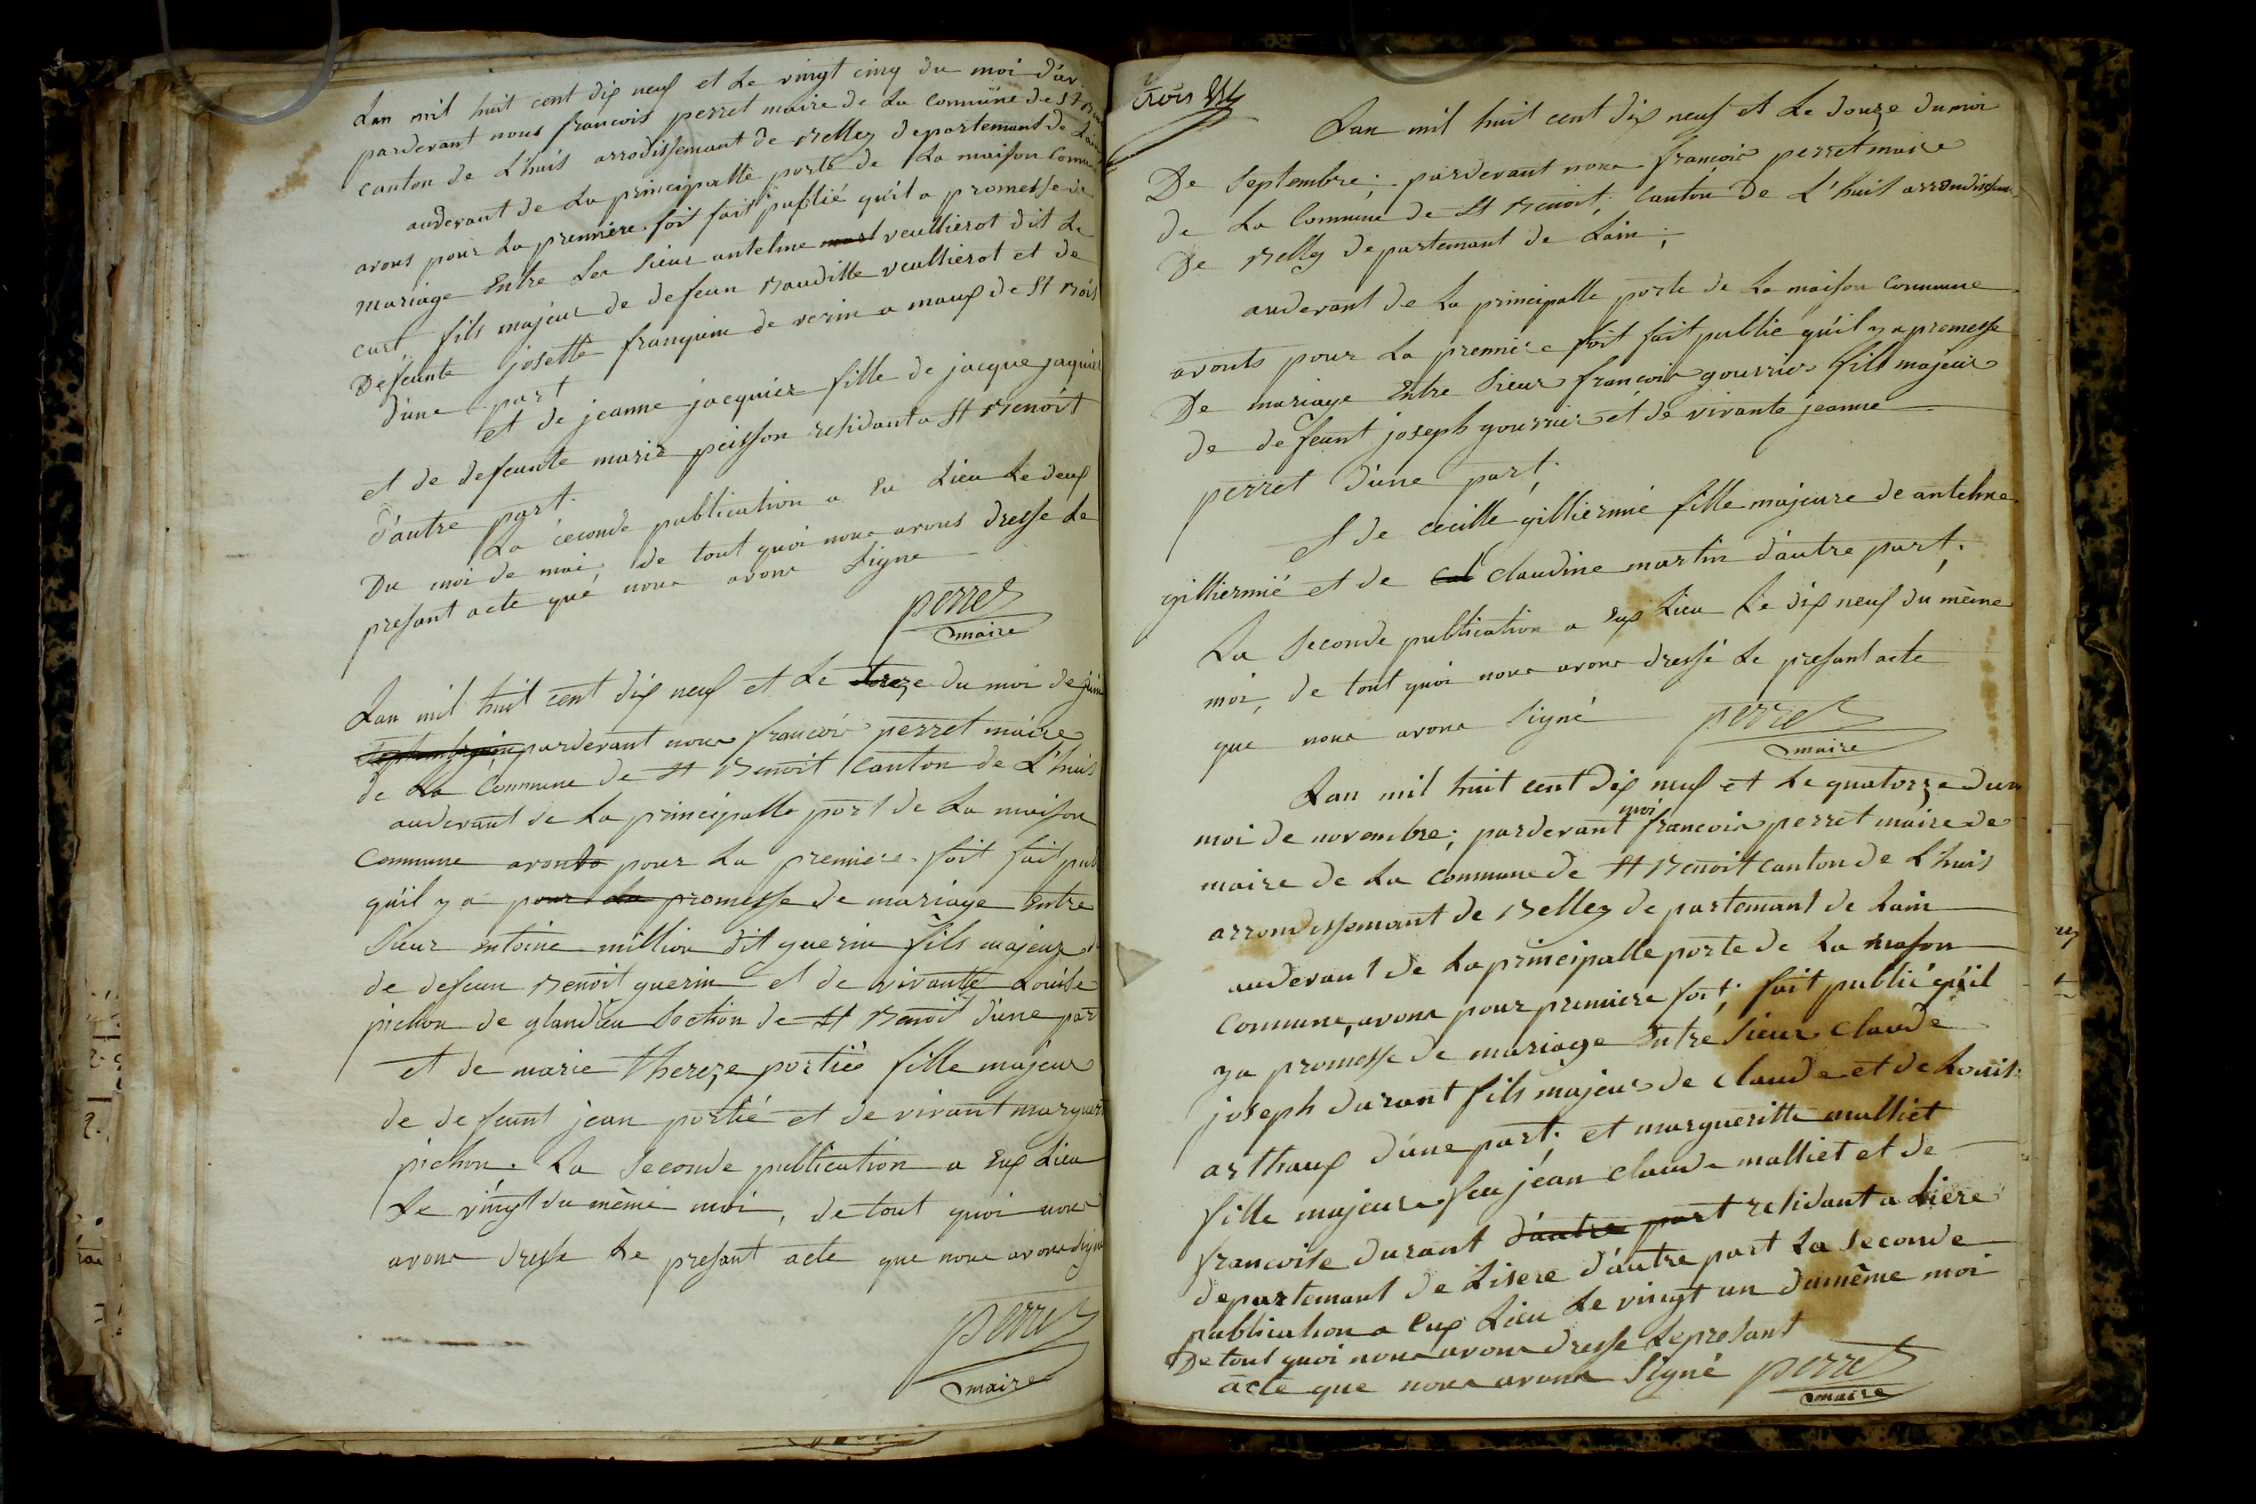 Lan mil huit cent dix neuf et le vingt cinq du moi d'av
pardevant nous francois perret maire de la commune de St
canton de L'huis arrodissemant de Belley departemant de Lain
audevant de la principalle porte de la maison Comm
avons pour la premiere foit fait publié qu'il a promesse de
mariage Entre Les sieur antelme veullierot dit Le
curt fils majeur de defeun Baudille veullierot et de
Defeunte josette franquin de verin a
d'une part
et de jeanne jacquier fille de jacque jaquier
et de defeunte marie peisson residant a St Benoit
d'autre part.
La ceconde publication a Eu Lieu Le deux
Du moi de mai, de tout quoi nous avons dresse Le
presant acte que nous avons signe
perret
maire
Lan mil huit cent dix neuf et Le treze du moi de juin
pardevant nous francois perret maire
de La Commune de St Benoit Canton de L'huis
audevant de La principalle port de La maison
Commune avons pour La premiere foit fait pub
qu'il y a pour La promesse de mariage Entre
sieur Entoine million dit guerin fils majeur
de defeun Benoit guerin et de vivante Louise
pichon de glandieu Section de St Benoit d'une par
et de marie thereze portié fille majeur
de defeunt jean portié et de vivant marguer
pichon. La seconde publication a Eux Lieu
Le vingt du même moi, de tout quoi nous
avons dresse Le presant acte que nous avons signe
perret
maire
trois
Lan mil huit cent dix neuf et Le douze du moi
De septembre; pardevant nous françois perret maire
de La Commune de St Benoit; Canton de L'huis arrondissem
De Belley departemant de Lain;
audevant de La principalle porte de La maison commune
avonts pour La premiere foit fait publié qu'il y a promesse
De mariage Entre sieur françois gourrier fils majeur
de defeunt joseph gourrier et de vivante jeanne
perret d'une part;
Et de cecille gilliermié fille majeure de antelme
gilliermié et de cal claudine martin d'autre part;
La seconde publication a Eux Lieu Le dix neuf du même
moi, de tout quoi nous avons dressé Le presant acte
que nous avons signé
perret
maire
Lan mil huit cent dix neuf et Le quatorze du
moi de novembre; pardevant moi francois perret maire de
maire de La commune de St Benoit canton de L'huis
arrondissemant de Belley departemant de Lain
audevant de La principalle porte de La mason
Commune, avons pour premiere foit; fait publié qu'il
y a promesse de mariage Entre sieur Claude
joseph durant fils majeur de claude et de Louis
arthaux d'une part; et margueritte malliet
fille majeure feu jean claude malliet et de
francoise durant d'autre part residant a Liere
departemant de Lisere d'autre part La seconde
publication a Eux Lieu Le vingt un du même moi
De tout quoi nous avons dresse Le presant
acte que nous avons signé perret
maire